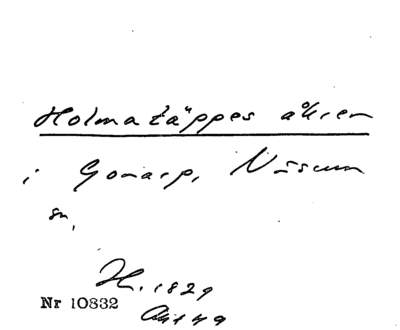 Holmatäppes åkren
i Gonarp, Näsum
sn,
H. 1829
Nr 10832
Akt 49